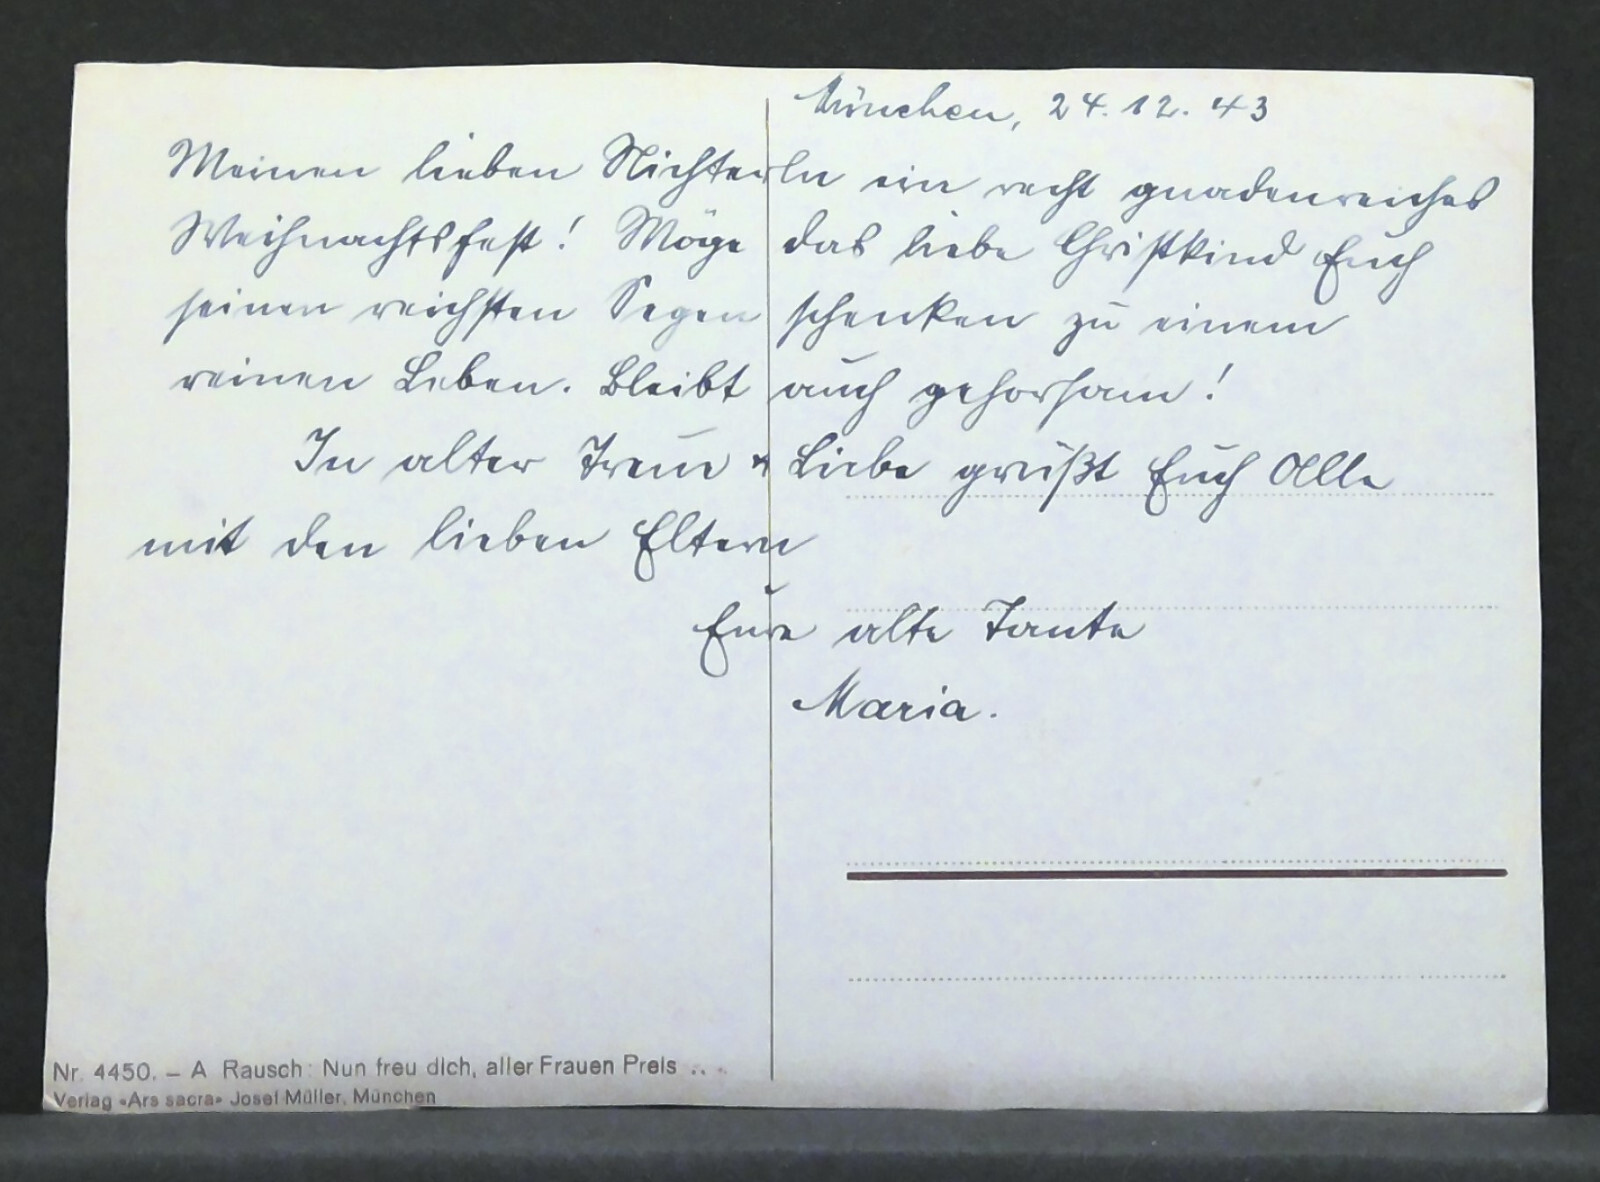 München, 24.12.43
Meinen lieben Nichterln ein recht gnadenreiches
Weihnachtsfest! Möge das liebe Christkind Euch
seinen reichsten Segen schenken zu einem
reinen Leben. Bleibt auch gehorsam!
In alter Treue & Liebe grüßt Euch Alle
mit den lieben Eltern
Eure alte Tante
Maria.
Nr. 4450. – A Rausch: Nun freu dich, aller Frauen Preis ...
Verlag «Ars sacra» Josef Müller, München